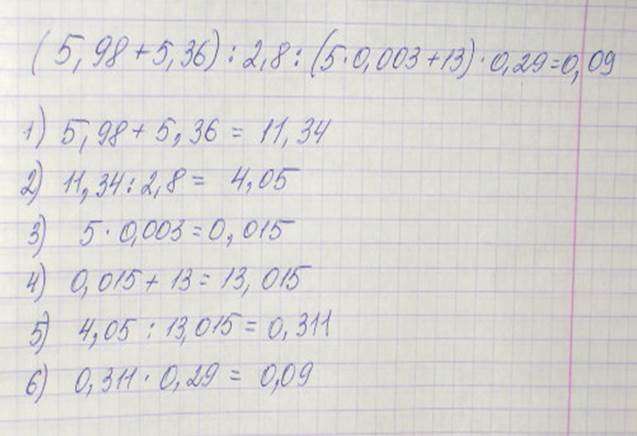 (5,98+5,36):2,8:(5·0,003+13)·0,29=0,09
1) 5,98+5,36=11,34
2) 11,34:2,8=4,05
3) 5·0,003=0,015
4) 0,015+13=13,015
5) 4,05:13,015=0,311
6) 0,311·0,29=0,09